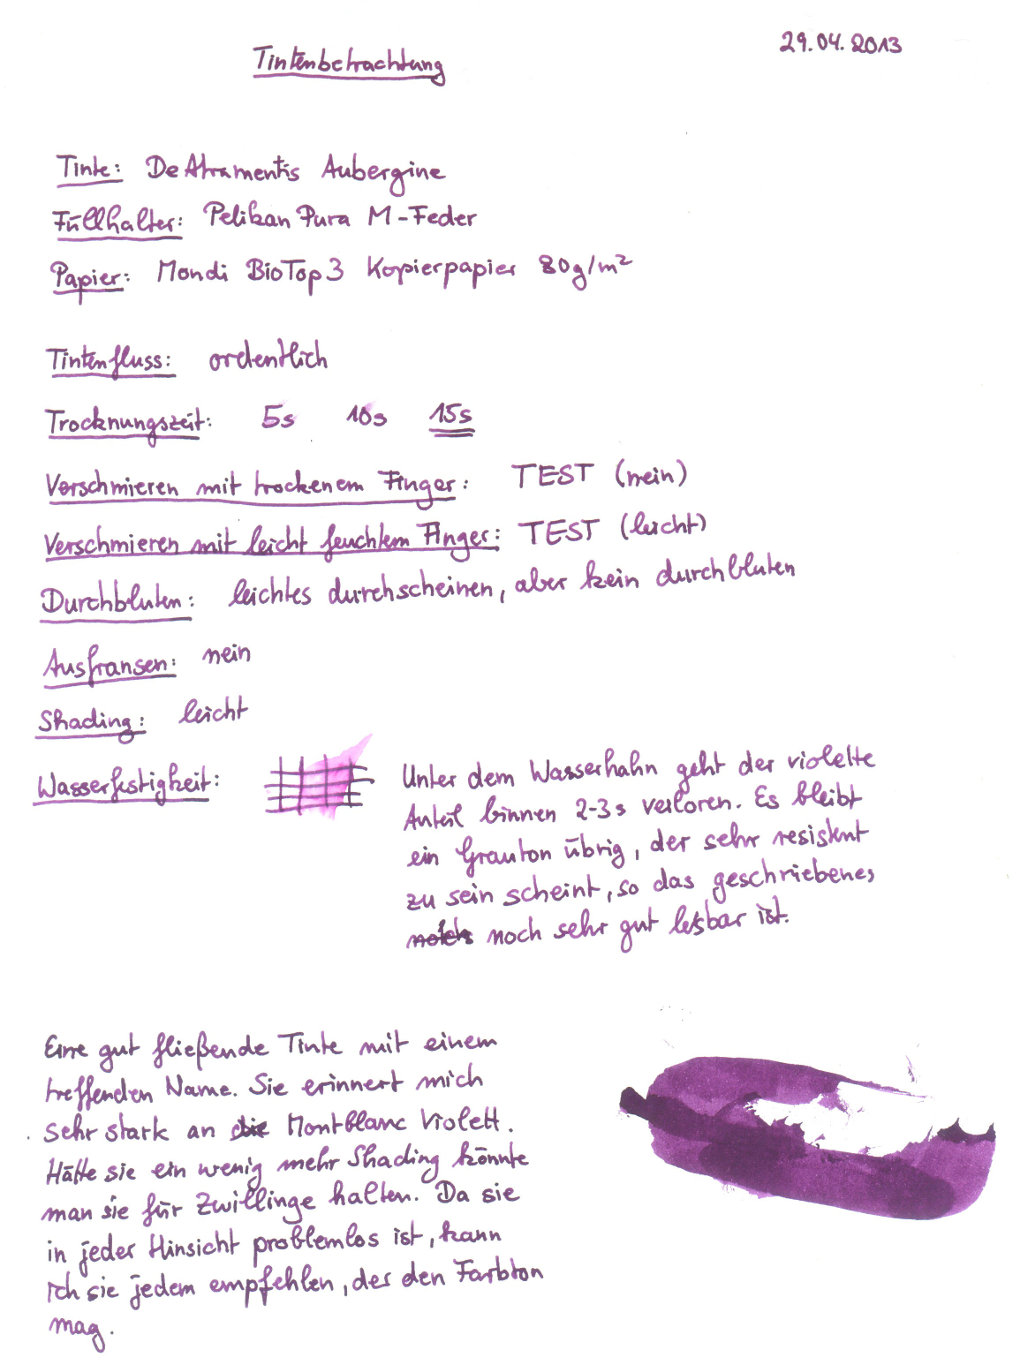 29.04.2013
Tintenbetrachtung
Tinte: De Atramentis Aubergine
Füllhalter: Pelikan Pura M-Feder
Papier: Mondi BioTop3 Kopierpapier 80g/m²
Tintenfluss: ordentlich
Trocknungszeit: 5s 10s 15s
Verschmieren mit trockenem Finger: TEST (nein)
Verschmieren mit leicht feuchtem Finger: TEST (leicht)
Durchbluten: leichtes durchscheinen, aber kein durchbluten
Ausfransen: nein
Shading: leicht
Wasserfestigkeit:
Unter dem Wasserhahn geht der violette
Anteil binnen 2-3s verloren. Es bleibt
ein Grauton übrig, der sehr resistent
zu sein scheint, so das geschriebenes
noch sehr gut lesbar ist.
Eine gut fließende Tinte mit einem
treffenden Name. Sie erinnert mich
sehr stark an die Montblanc Violett.
Hätte sie ein wenig mehr Shading könnte
man sie für Zwillinge halten. Da sie
in jeder Hinsicht problemlos ist, kann
ich sie jedem empfehlen, der den Farbton
mag.